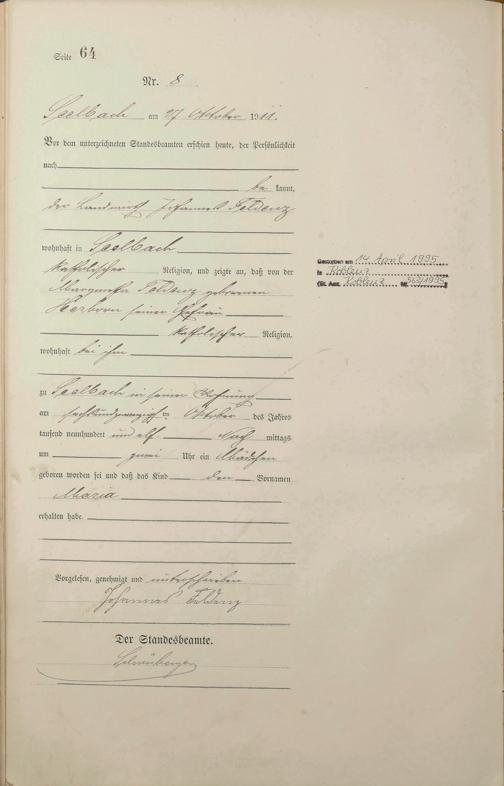 Seite 64
Nr. 8
Seelbach am 27 Oktober 1911.
Vor dem unterzeichneten Standesbeamten erschien heute, der Persönlichkeit
nach
be kannt,
der Landwirth Johannes Feldenz
wohnhaft in Seelbach
katholischer Religion, und zeigte an, daß von der
Margaretha Feldenz geborenen
Herborn seiner Ehefrau
katholischer Religion,
wohnhaft bei ihm
zu Seelbach in seiner Wohnung
am sechsundzwanzigsten Oktober des Jahres
tausend neunhundert und elf Nach mittags
um zwei Uhr ein Mädchen
geboren worden sei und daß das Kind den Vornamen
Maria
erhalten habe.
Vorgelesen, genehmigt und unterschrieben
Johannes Feldenz
Der Standesbeamte.
Gestorben am 14 April 1995
in Koblenz
(St. Amt. Koblenz Nr. 563/1995)